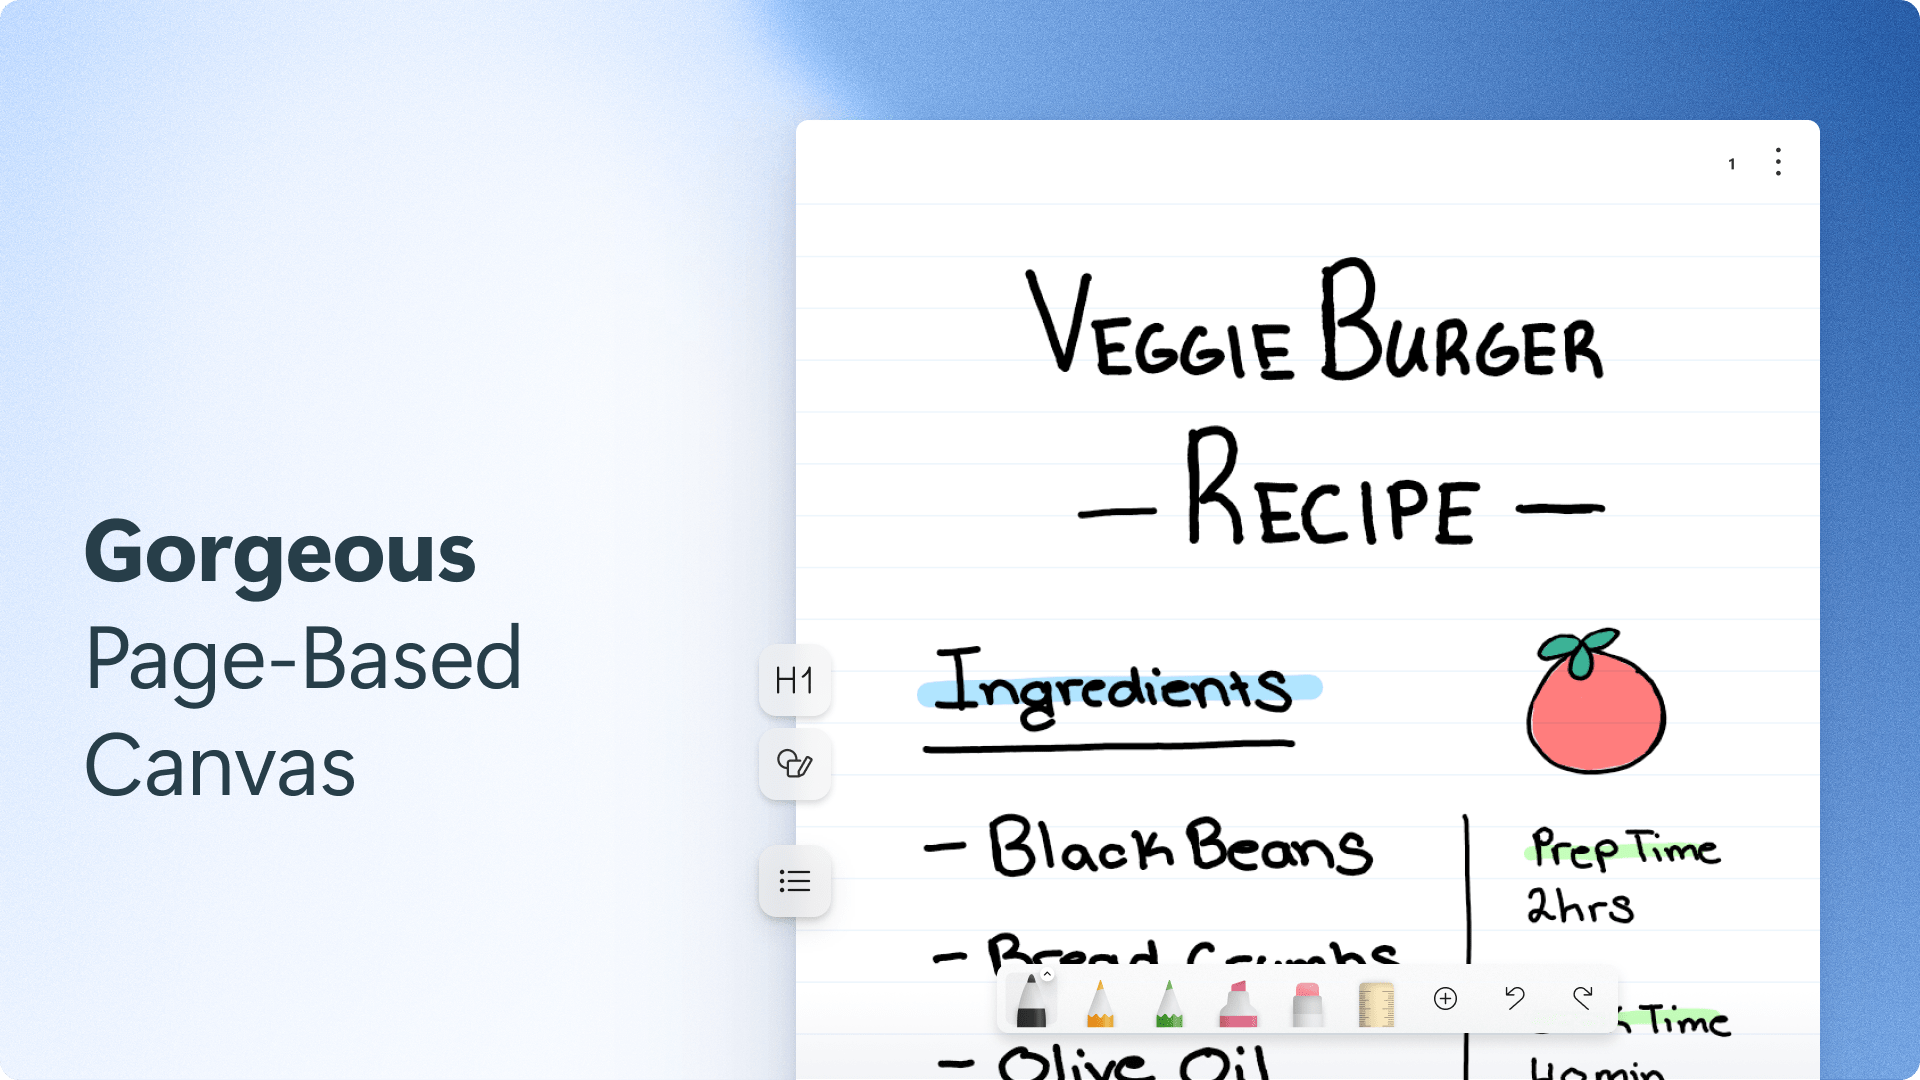 Gorgeous
Page-Based
Canvas
1
VEGGIE BURGER
— RECIPE —
H1
Ingredients
- Black Beans
Prep Time
2hrs
- Bread Crumbs
Time
- Olive Oil